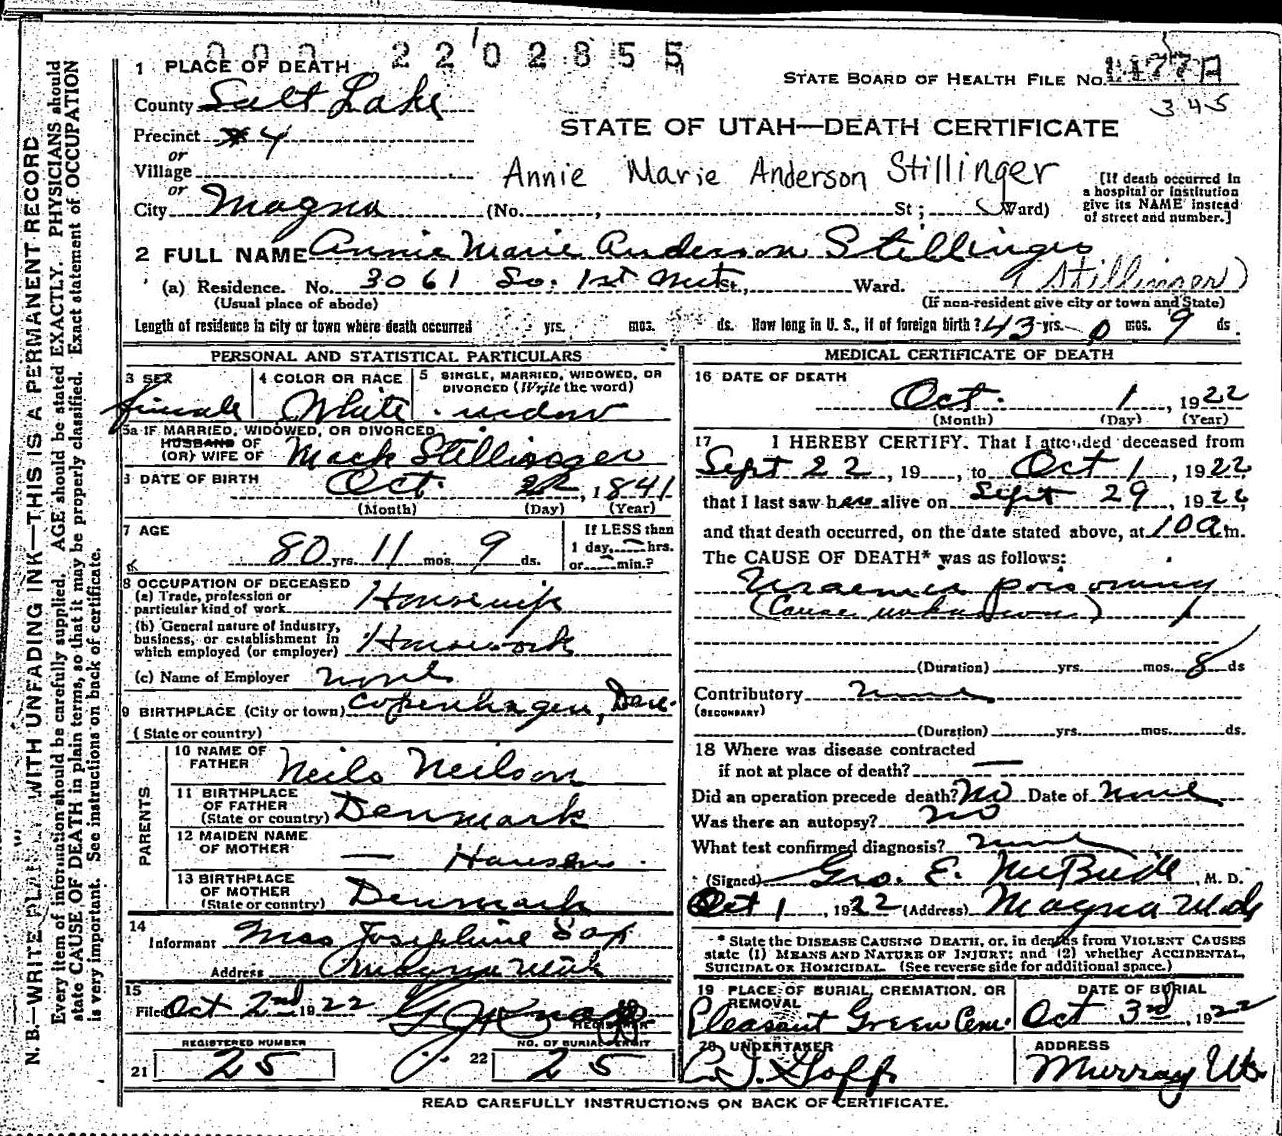 000 2202855
STATE BOARD OF HEALTH FILE No. 1477A
345
1 PLACE OF DEATH
County Salt Lake
Precinct #4
or
Village
or
City Magna (No. , St; Ward)
STATE OF UTAH—DEATH CERTIFICATE
Annie Marie Anderson Stillinger
[If death occurred in a hospital or institution give its NAME instead of street and number.]
2 FULL NAME Annie Marie Anderson Stillinger
(Stillinger)
(a) Residence. No. 3061 So. 1st St., Ward.
(Usual place of abode)
(If non-resident give city or town and State)
Length of residence in city or town where death occurred yrs. mos. ds. How long in U. S., if of foreign birth? 43 yrs. 0 mos. 9 ds.
PERSONAL AND STATISTICAL PARTICULARS
3 SEX
female
4 COLOR OR RACE
White
5 SINGLE, MARRIED, WIDOWED, OR DIVORCED (Write the word)
widow
5a IF MARRIED, WIDOWED, OR DIVORCED
HUSBAND OF
(OR) WIFE OF Mack Stillinger
DATE OF BIRTH Oct. 22, 1841
(Month) (Day) (Year)
7 AGE
80 yrs. 11 mos. 9 ds.
If LESS than
1 day, hrs.
or min.?
8 OCCUPATION OF DECEASED
(a) Trade, profession or
particular kind of work Housewife
(b) General nature of industry,
business, or establishment in
which employed (or employer) Housework
(c) Name of Employer none
9 BIRTHPLACE (City or town) Copenhagen, Den.
(State or country)
PARENTS
10 NAME OF FATHER Neils Neilson
11 BIRTHPLACE OF FATHER
(State or country) Denmark
12 MAIDEN NAME OF MOTHER — Hansen
13 BIRTHPLACE OF MOTHER
(State or country) Denmark
14
Informant Mrs Josephine
Address Magna Utah
15
Filed Oct 2nd 1922
REGISTRAR
REGISTERED NUMBER
21 25
NO. OF BURIAL PERMIT
22 25
MEDICAL CERTIFICATE OF DEATH
16 DATE OF DEATH
Oct. 1, 1922
(Month) (Day) (Year)
17 I HEREBY CERTIFY. That I attended deceased from
Sept 22, 19 , to Oct 1, 1922
that I last saw her alive on Sept 29, 1922,
and that death occurred, on the date stated above, at 10 a m.
The CAUSE OF DEATH* was as follows:
Uraemic poisoning
(Cause unknown)
(Duration) yrs. mos. 8 ds
Contributory none
(SECONDARY)
(Duration) yrs. mos. ds.
18 Where was disease contracted
if not at place of death? —
Did an operation precede death? No Date of none
Was there an autopsy? no
What test confirmed diagnosis? none
(Signed) Geo. E. McBride, M. D.
Oct 1, 1922 (Address) Magna Utah
* State the DISEASE CAUSING DEATH, or, in deaths from VIOLENT CAUSES
state (1) MEANS AND NATURE OF INJURY; and (2) whether ACCIDENTAL,
SUICIDAL OR HOMICIDAL. (See reverse side for additional space.)
19 PLACE OF BURIAL, CREMATION, OR REMOVAL
Pleasant Green Cem.
DATE OF BURIAL
Oct 3rd, 1922
20 UNDERTAKER
Goff
ADDRESS
Murray Ut.
READ CAREFULLY INSTRUCTIONS ON BACK OF CERTIFICATE.
N. B.—WRITE PLAINLY WITH UNFADING INK—THIS IS A PERMANENT RECORD
Every item of information should be carefully supplied. AGE should be stated EXACTLY. PHYSICIANS should
state CAUSE OF DEATH in plain terms, so that it may be properly classified. Exact statement of OCCUPATION
is very important. See instructions on back of certificate.